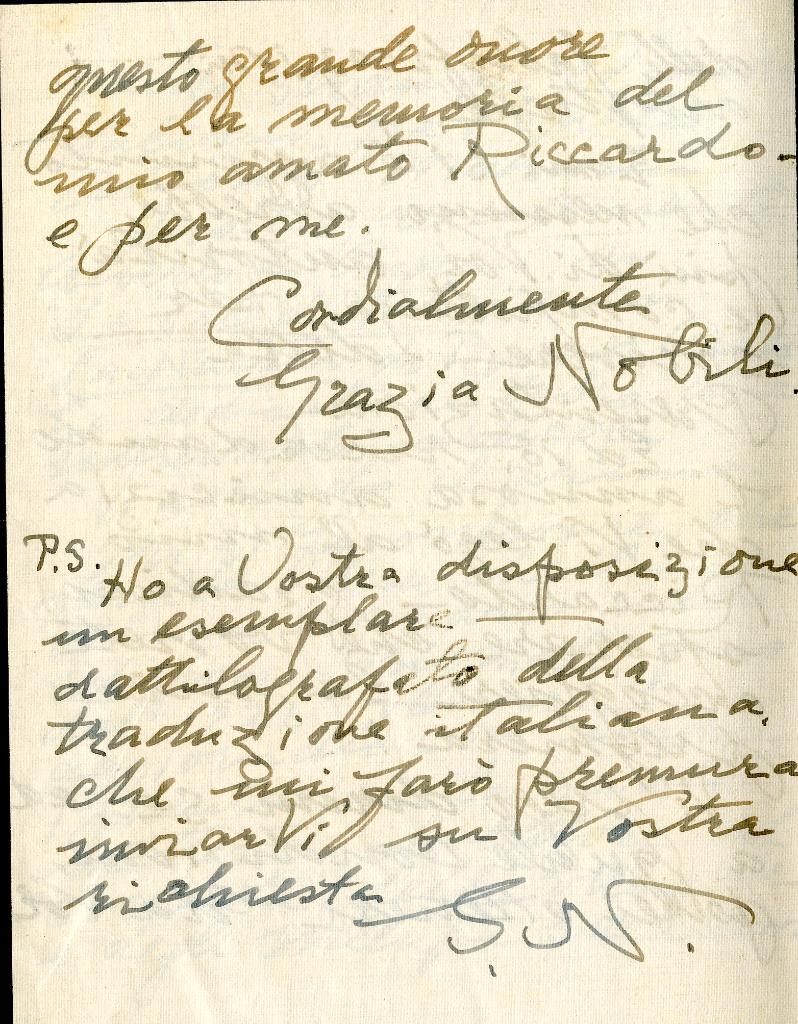 questo grande onore
per la memoria del
mio amato Riccardo -
e per me.
Cordialmente
Grazia Nobili.
P.S. Ho a Vostra disposizione
un esemplare —
dattilografato della
traduzione italiana,
che mi farò premura
inviarVi su Vostra
richiesta
G. N.